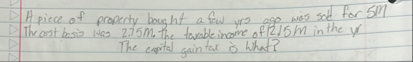 A piece of property bought a few yrs ago was sold for 5M
The cost basis was 2.75M. The taxable income of 1215M in the yr
The capital gain tax is What?